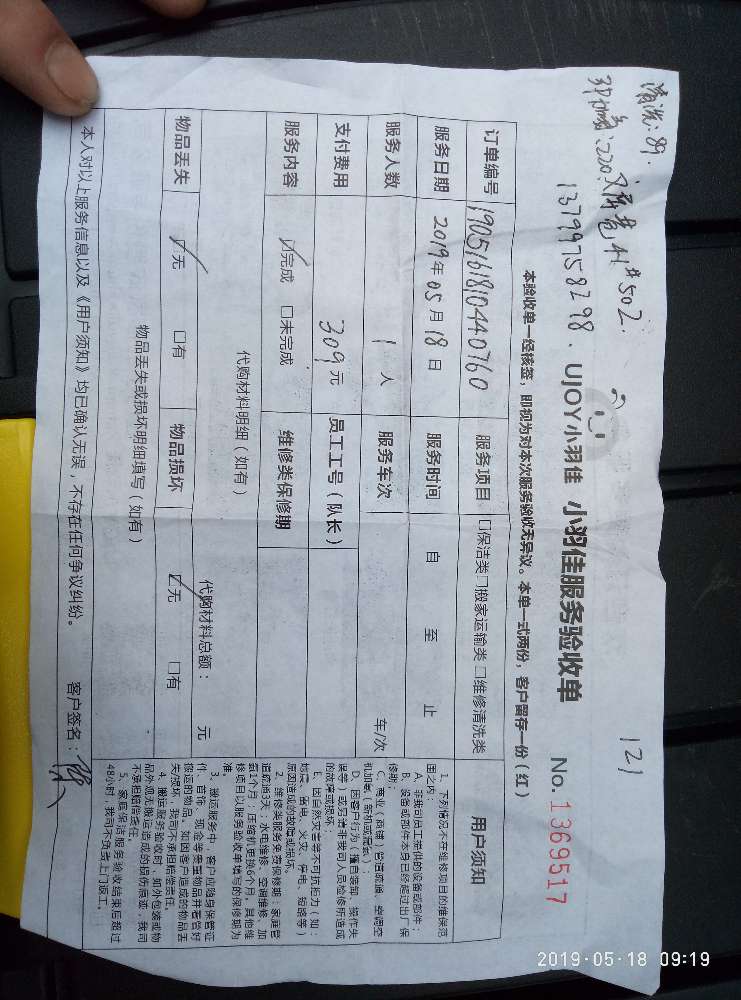 清洗：89.
121
13799758298.
UJOY小羽佳 小羽佳服务验收单
No. 1369517
本验收单一经核签，即视为对本次服务验收无异议。本单一式两份，客户留存一份（红）
订单编号 1905161810440760 服务项目 □保洁类□搬家运输类□维修清洗类
服务日期 2019年05月18日 服务时间 自 至 止
服务人数 1 人 服务车次 车/次
支付费用 309元 员工工号（队长）
服务内容 ☑完成 □未完成 维修类保修期
代购材料明细（如有）
代购材料总额： 元
物品丢失 ☑无 □有 物品损坏 ☑无 □有
物品丢失或损坏明细填写（如有）
本人对以上服务信息以及《用户须知》均已确认无误，不存在任何争议纠纷。 客户签名：
用户须知
1、下列情况不在维修项目的维保范
围之内：
A、非我司员工提供的设备或部件；
B、设备或部件本身已经超过出厂保
修期；
C、商业（商铺）管道疏通、空调空
机加氟（新机或漏氟）；
D、因客户行为（擅自装卸、操作失
误等）或另请非我司人员检修所造成
的故障或损坏；
E、因自然灾害等不可抗拒力（如：
地震、雷电、火灾、停电、短路等）
原因造成的故障或损坏。
2、维修类服务免费保修期：家庭管
道疏通3天；水电维修、空调维修、加
氟1个月；压缩机更换6个月，其他维
修项目以服务验收单填写的保修期为
准。
3、搬运服务中，客户应随身保管证
件、首饰、现金等贵重物品并看管好
搬运的物品。如因客户造成的物品丢
失/损坏，我司不承担赔偿责任。
4、搬运服务验收时，如外包装或物
品外观无搬运造成的损伤痕迹，我司
不承担赔偿责任。
5、家庭保洁服务验收结束后超过
48小时，我司不负责上门返工。
2019-05-18 09:19